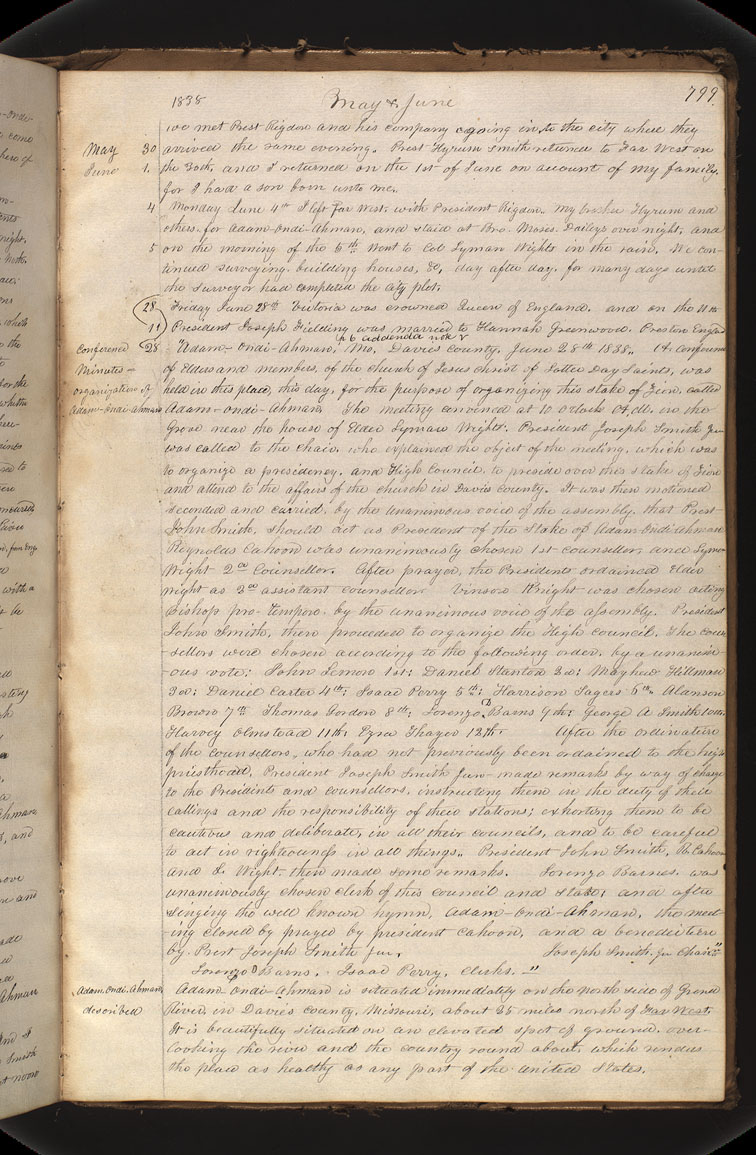 1838 May & June 799
we met Prest Rigdon and his company going in to the city where they
May 30 arrived the same evening. Prest Hyrum Smith returned to Far West on
June 1. the 30th, and I returned on the 1st of June on account of my family,
for I had a son born unto me.
4 Monday June 4th I left Far West, with President Rigdon, my brother Hyrum and
others, for Adam-ondi-Ahman, and staid at Bro. Moses Dailey's over night; and
5 on the morning of the 5th went to Col Lyman Wights in the rain. We con-
tinued surveying, building houses, &c, day after day, for many days until
the surveyor had completed the city plot.
28 Friday June 28th Victoria was crowned Queen of England. and on the 11th
11 President Joseph Fielding was married to Hannah Greenwood. Preston England
p 6 addenda note
Conference Minutes— organization of Adam-Ondi-Ahman
28 "Adam-Ondi-Ahman, Mo, Daviess County, June 28th 1838. A conference
of Elders and members, of the church of Jesus christ of Latter Day Saints, was
held in this place, this day, for the purpose of organizing this stake of Zion, called
Adam-ondi-Ahman. The meeting convened at 10 o'clock A,M. in the
Grove near the house of Elder Lyman Wight. President Joseph Smith Jun
was called to the chair, who explained the object of the meeting, which was
to organize a presidency, and High Council to preside over this stake of Zion
and attend to the affairs of the church in Daviess County. It was then motioned
seconded and carried, by the unanimous voice of the assembly, that Prest
John Smith, should act as President of the Stake of Adam Ondi Ahman
Reynolds Cahoon was unanimously chosen 1st counsellor, and Lyman
Wight 2nd Counsellor. After prayer, the Presidents ordained Elder
Wight as 2nd assistant counsellor Vinson Knight was chosen acting
bishop pro-tempore by the unanimous voice of the assembly. President
John Smith, then proceeded to organize the High council. The coun-
-sellors were chosen according to the following order, by a unanim-
-ous vote: John Lemon 1st; Daniel Stanton 2d: Mayhew Hillman
3d; Daniel Carter 4th; Isaac Perry 5th; Harrison Sagers 6th. Alanson
Brown 7th Thomas Gordon 8th; Lorenzo D Barns 9th; George A Smith 10th.
Harvey Olmstead 11th; Ezra Thayer 12th. After the ordination
of the counsellors, who had not previously been ordained to the high
priesthood, President Joseph Smith Jun— made remarks by way of charge
to the Presidents and counsellors, instructing them in the duty of their
callings and the responsibility of their stations; exhorting them to be
cautious and deliberate, in all their councils, and to be careful
to act in righteousness in all things. President John Smith, R. Cahoon
and L. Wight then made some remarks. Lorenzo Barnes was
unanimously chosen clerk of this council and stake; and after
singing the well known hymn, Adam-ondi-Ahman, the meet-
-ing closed by prayer by president Cahoon, and a benediction
by Prest Joseph Smith Jun. Joseph Smith Jr Chairn"
Lorenzo D Barns, Isaac Perry, Clerks."
Adam Ondi Ahman described
Adam ondi Ahman is situated immediately on the north side of Grand
River, in Daviess county, Missouri, about 25 miles north of Far West.
It is beautifully situated on an elevated spot of ground, over-
looking the river and the country round about, which renders
the place as healthy as any part of the United States.